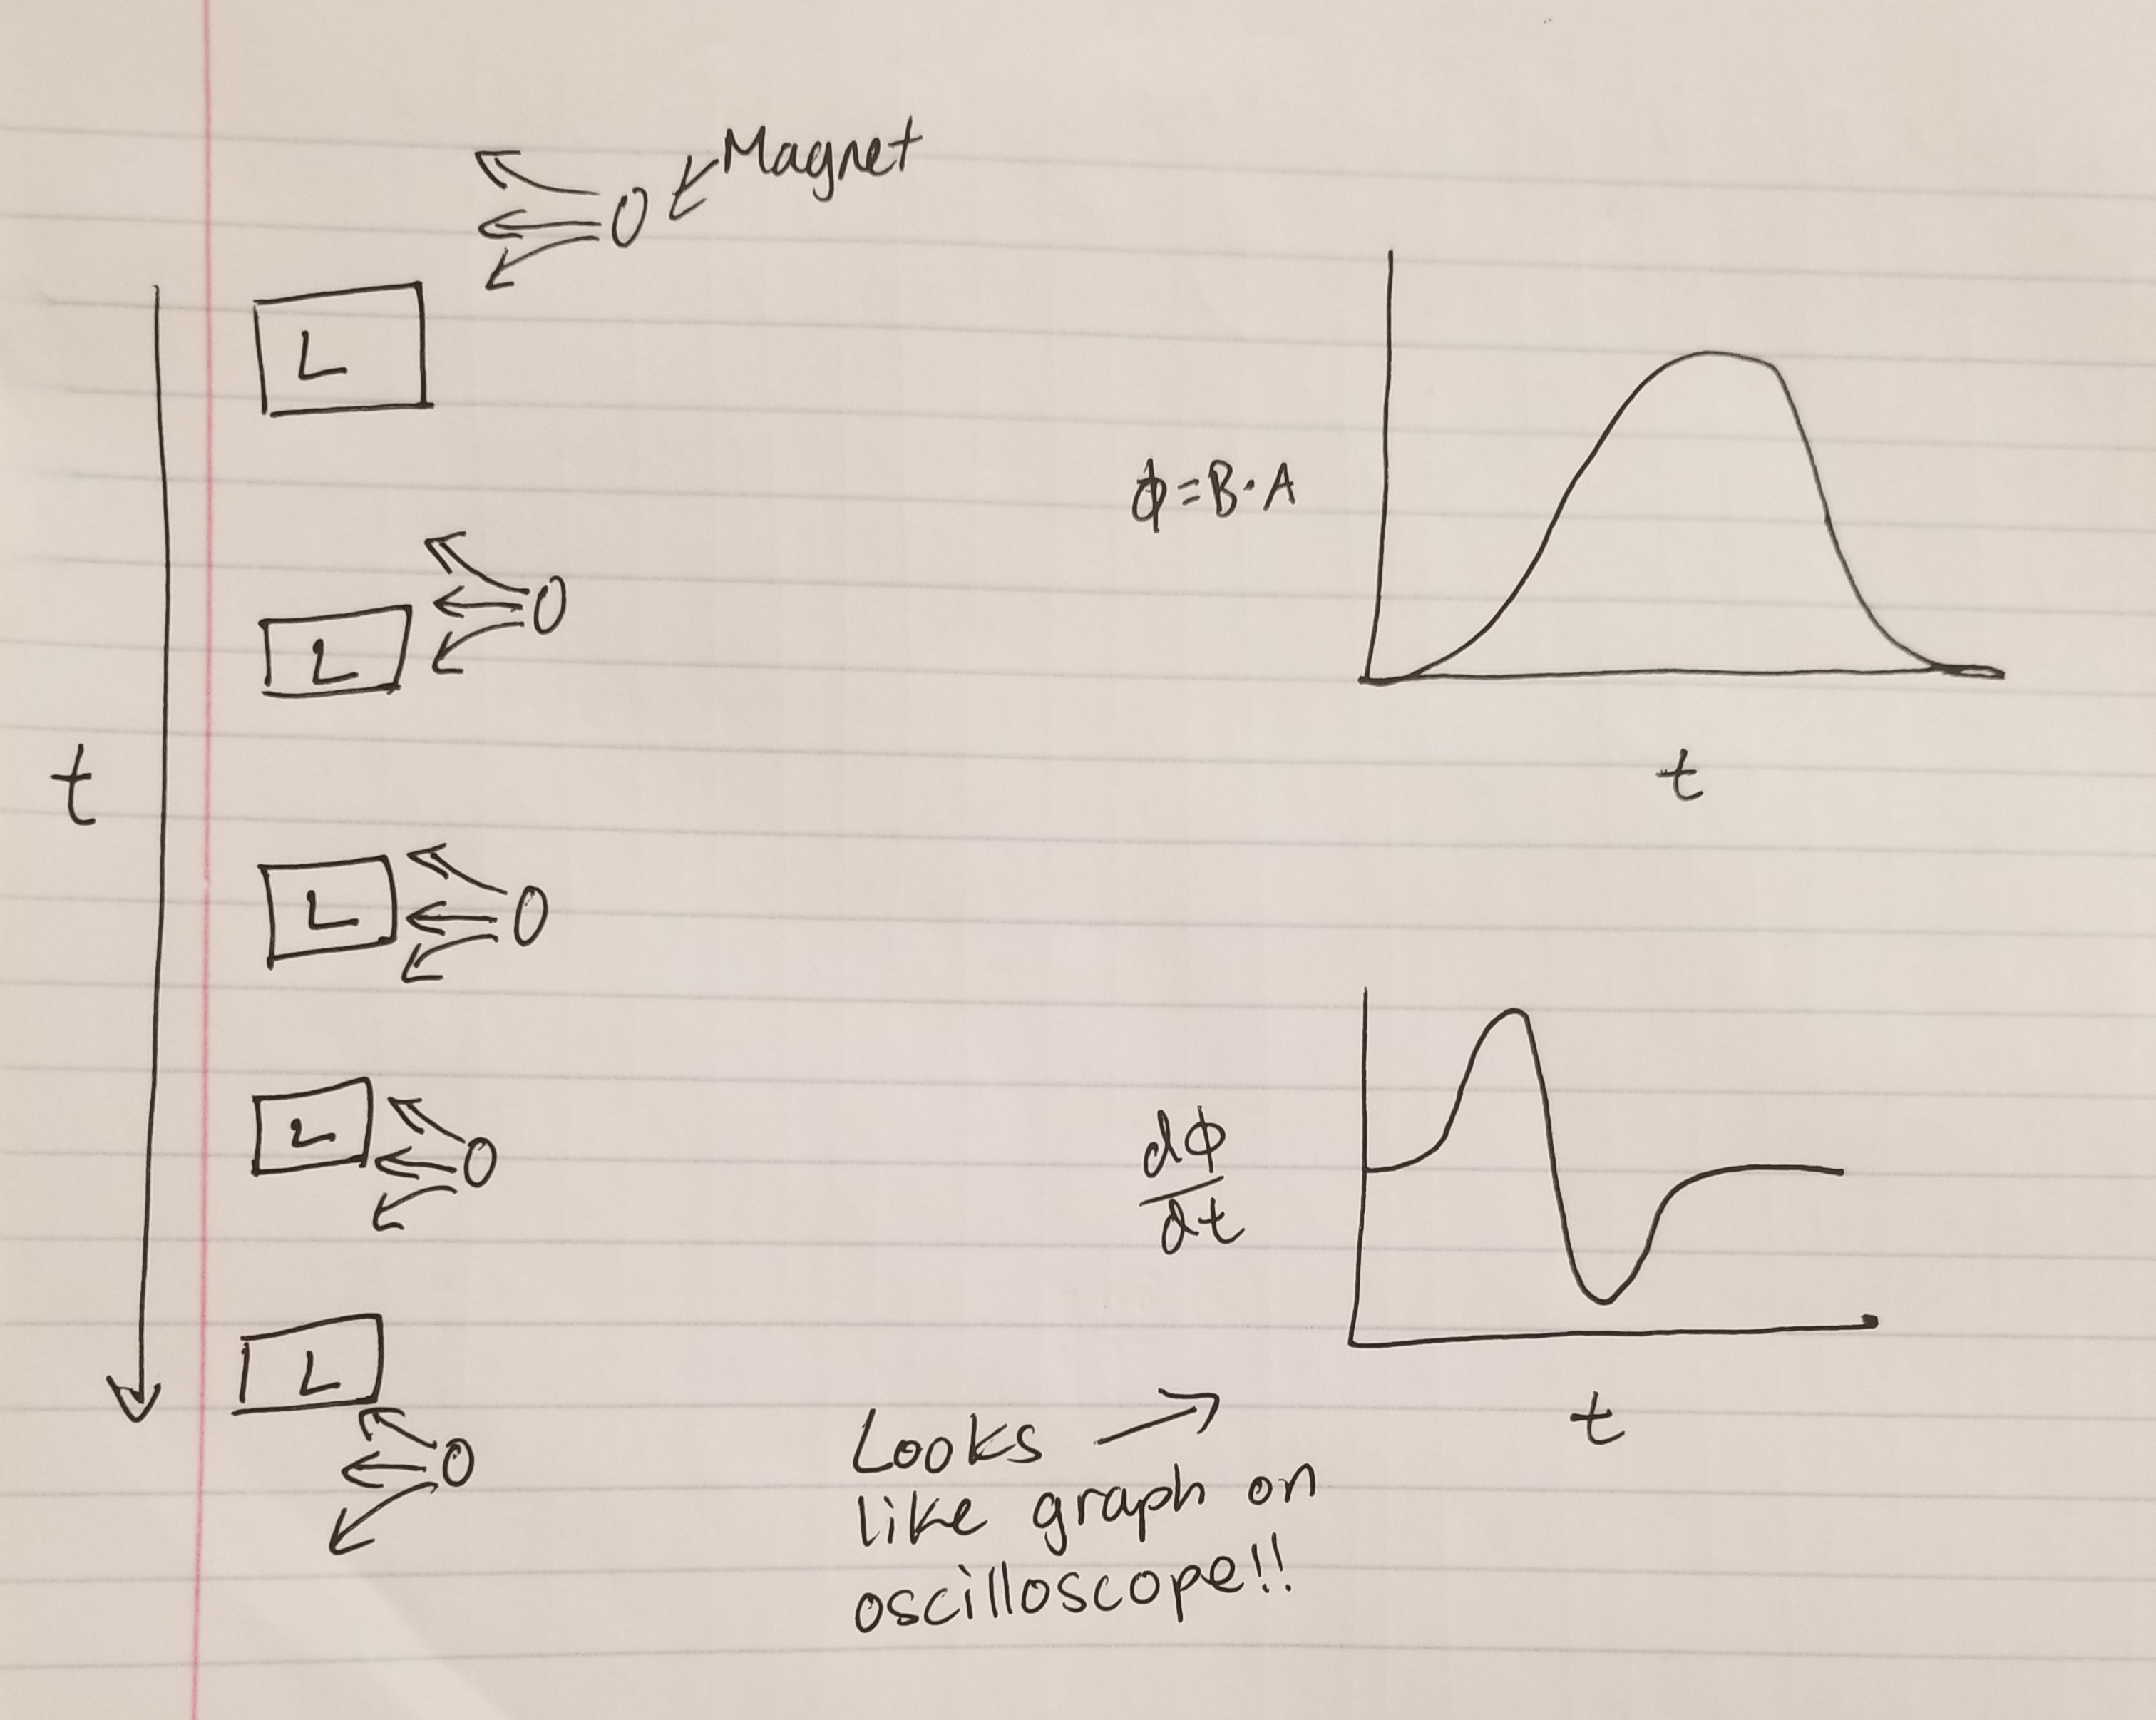 Magnet
L
L
t
L
L
L
ϕ=B·A
t
dϕ
dt
t
Looks
like graph on
oscilloscope!!